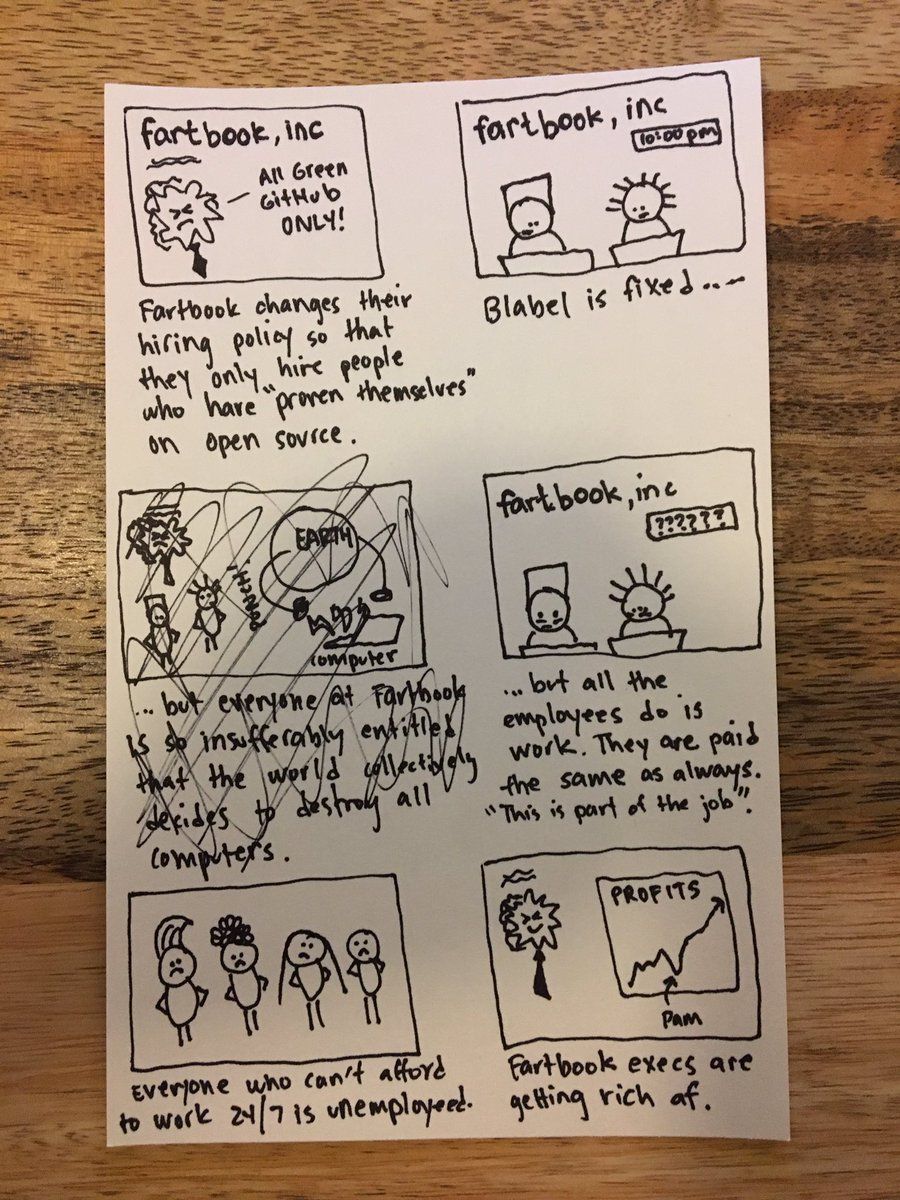 fartbook, inc
All Green
GitHub
ONLY!
Fartbook changes their
hiring policy so that
they only hire people
who have "proven themselves"
on open source.
EARTH
PONCH!
computer
...but everyone at Fartbook
is so insufferably entitled
that the world collectively
decides to destroy all
computers.
Everyone who can't afford
to work 24/7 is unemployeed.
fartbook, inc
10:00 pm
Blabel is fixed....
fartbook, inc
??????
...but all the
employees do is
work. They are paid
the same as always.
"This is part of the job".
PROFITS
Pam
Fartbook execs are
getting rich af.